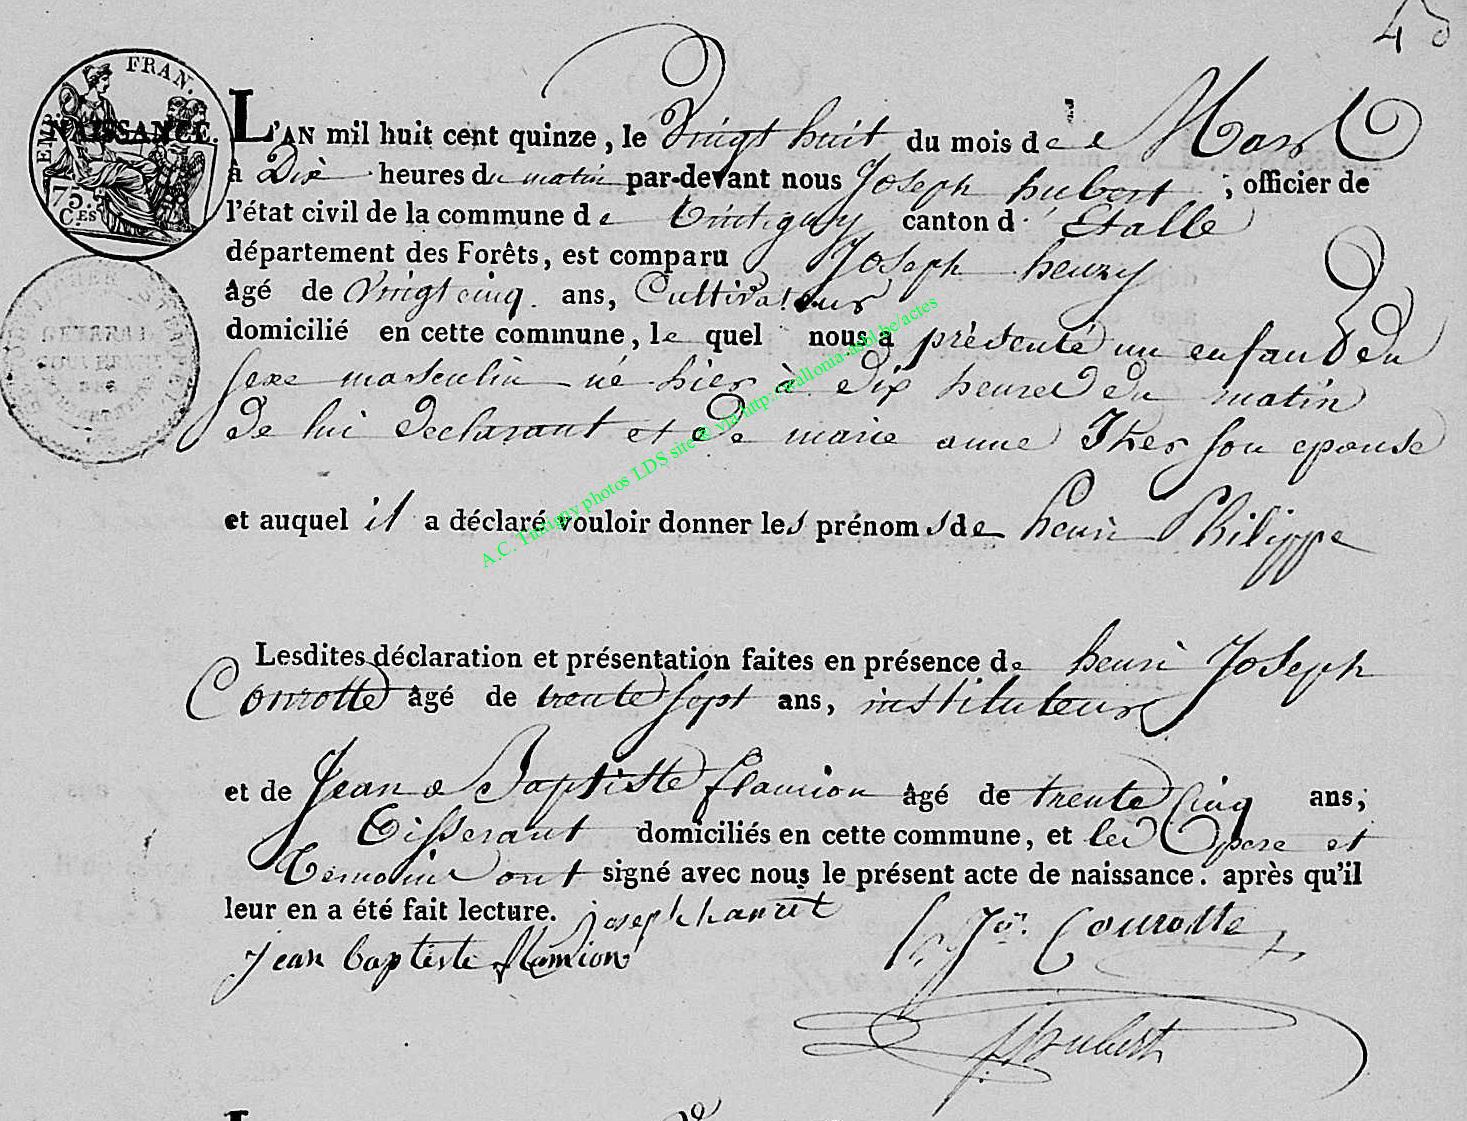 48
EMP. FRAN.
75.
C.ES
NAISSANCE.
L'AN mil huit cent quinze, le Vingt huit du mois de Mars
à Dix heures du matin par-devant nous Joseph hubert, officier de
l'état civil de la commune de Tintigny canton d'Etalle
département des Forêts, est comparu Joseph henry
âgé de Vingt cinq ans, Cultivateur
domicilié en cette commune, le quel nous a présenté un enfant du
sexe masculin né hier à dix heures du matin
de lui declarant et de marie anne son epouse
et auquel il a déclaré vouloir donner les prénoms de henri Philippe
Lesdites déclaration et présentation faites en présence de henri Joseph
Conrotte âgé de trente sept ans, instituteur
et de Jean Baptiste flamion âgé de trente cinq ans,
Tisserant domiciliés en cette commune, et les pere et
temoins ont signé avec nous le présent acte de naissance. après qu'il
leur en a été fait lecture. joseph
h. Jos. Conrotte
jean baptiste flamion
Hubert
A.C. Tintigny photos LDS site © via http://wallonia-asbl.be/actes